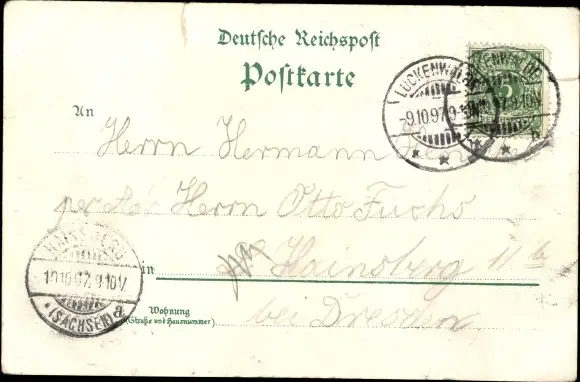 Deutsche Reichspost
Postkarte
LUCKENWALDE
-9.10.97.9-10V.
5
An
Herrn Hermann
per Adr Herrn Otto Fuchs
HAINSBERG
10.10.97. 9-10V
(SACHSEN) a
in Hainsberg 11b
Wohnung
(Straße und Hausnummer)
bei Dresden